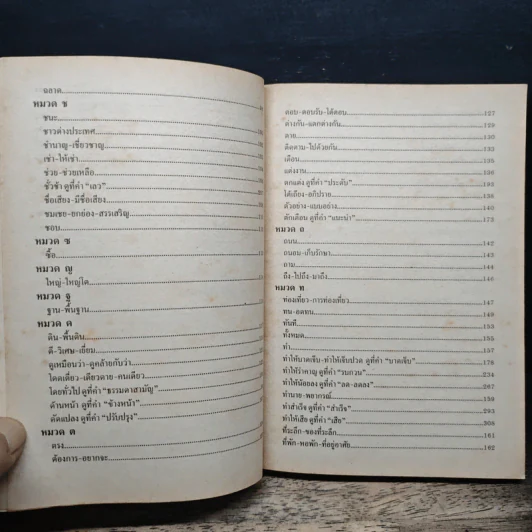 ฉลาด
หมวด ช
ชนะ
ชาวต่างประเทศ
ชำนาญ-เชี่ยวชาญ
เช่า-ให้เช่า
ช่วย-ช่วยเหลือ
ชั่วช้า ดูที่คำ "เลว"
ชื่อเสียง-มีชื่อเสียง
ชมเชย-ยกย่อง-สรรเสริญ
ชอบ
หมวด ซ
ซื้อ
หมวด ญ
ใหญ่-ใหญ่โต
หมวด ฐ
ฐาน-พื้นฐาน
หมวด ด
ดิน-พื้นดิน
ดี-วิเศษ-เยี่ยม
ดูเหมือนว่า-ดูคล้ายกับว่า
โดดเดี่ยว-เดียวดาย-คนเดียว
โดยทั่วไป ดูที่คำ "ธรรมดาสามัญ"
ด้านหน้า ดูที่คำ "ข้างหน้า"
ดัดแปลง ดูที่คำ "ปรับปรุง"
หมวด ต
ตรง
ต้องการ-อยากจะ
ตอบ-ตอบรับ-โต้ตอบ 127
ต่างกัน-แตกต่างกัน 129
ตาย 130
ติดตาม-ไปด้วยกัน
เตือน
แต่งงาน
ตกแต่ง ดูที่คำ "ประดับ"
โต้เถียง-อภิปราย
ตัวอย่าง-แบบอย่าง
ตักเตือน ดูที่คำ "แนะนำ"
หมวด ถ
ถนน 142
ถนอม-เก็บรักษา
ถาม 144
ถึง-ไปถึง-มาถึง 146
หมวด ท
ท่องเที่ยว-การท่องเที่ยว 147
ทน-อดทน 149
ทันที
ทั้งหมด 155
ทำ
ทำให้บาดเจ็บ-ทำให้เจ็บปวด ดูที่คำ "บาดเจ็บ" 176
ทำให้รำคาญ ดูที่คำ "รบกวน" 234
ทำให้น้อยลง ดูที่คำ "ลด-ลดลง" 267
ทำนาย-พยากรณ์ 159
ทำสำเร็จ ดูที่คำ "สำเร็จ" 293
ทำให้เสีย ดูที่คำ "เสีย" 308
ที่ระลึก-ของที่ระลึก 161
ที่พัก-หอพัก-ที่อยู่อาศัย 162